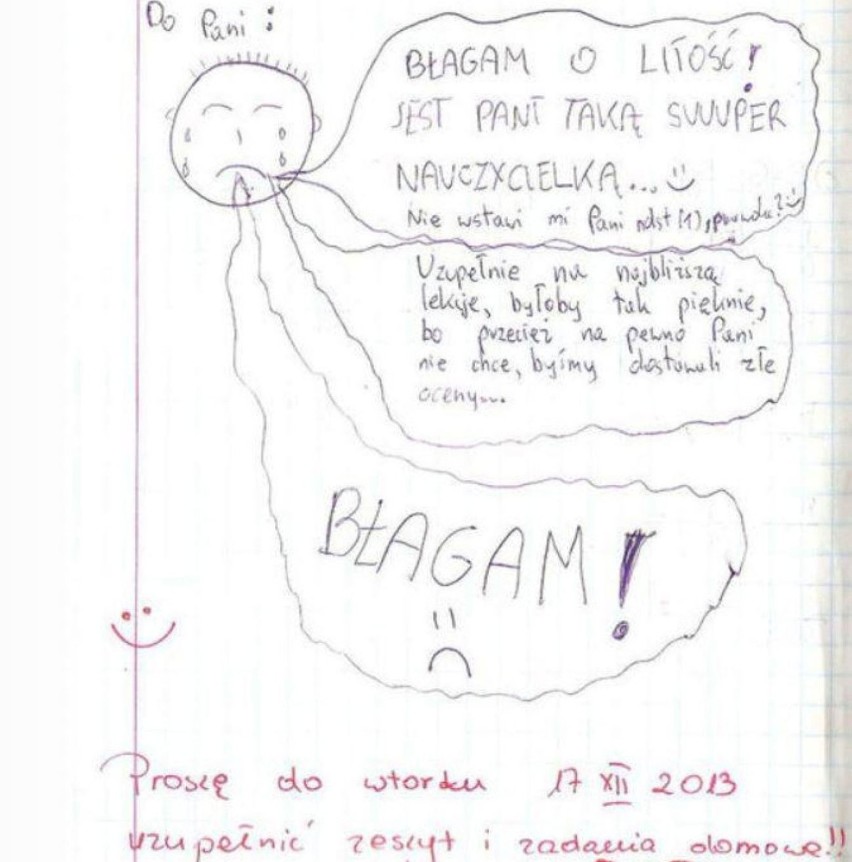 Do Pani :
BŁAGAM O LITOŚĆ!
JEST PANI TAKĄ SUUUPER
NAUCZYCIELKĄ...
Nie wstawi mi Pani ndst (1), prawda?
Uzupełnie na najbliższą
lekcje, byłoby tak pięknie,
bo przecież na pewno Pani
nie chce, byśmy dostawali złe
oceny...
BŁAGAM!
Proszę do wtorku 17 XII 2013
uzupełnić zeszyt i zadania domowe!!